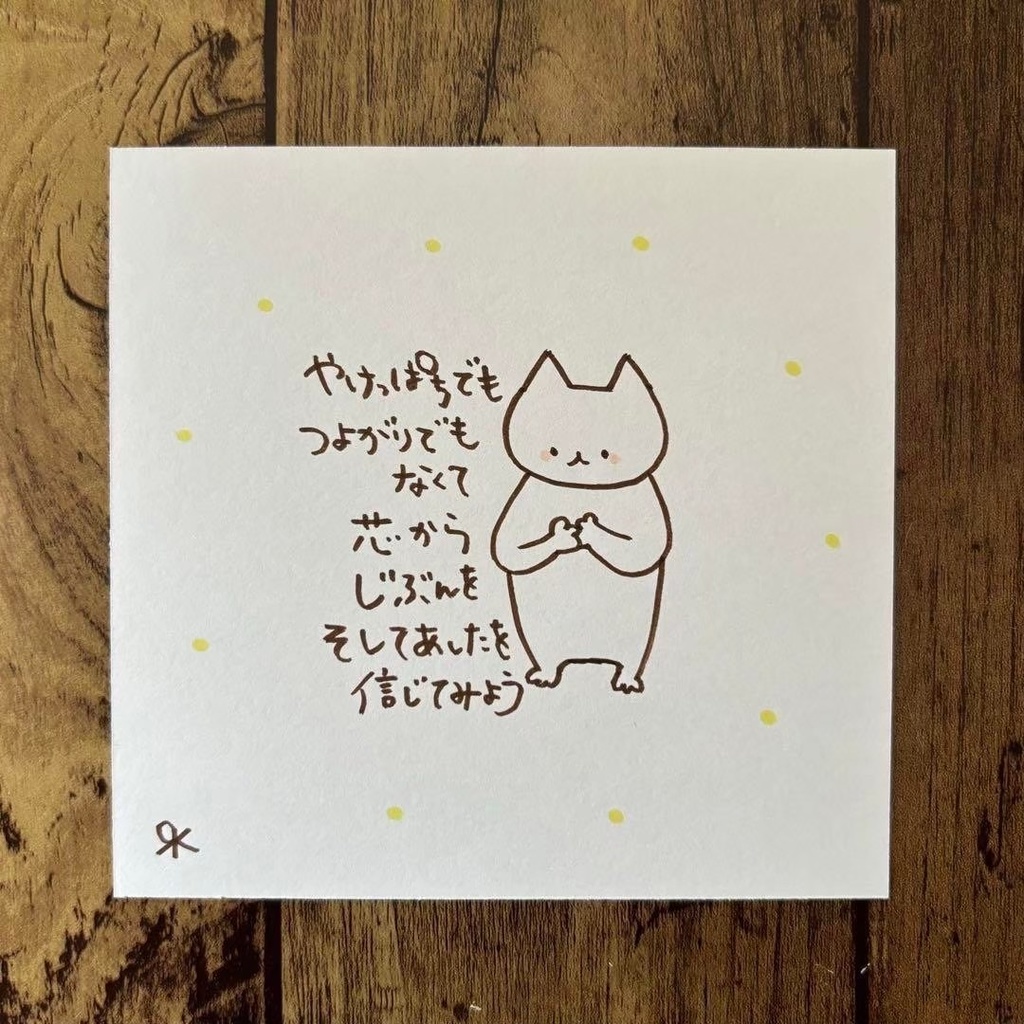 やけっぱちでも
つよがりでも
なくて
芯から
じぶんを
そしてあしたを
信じてみよう